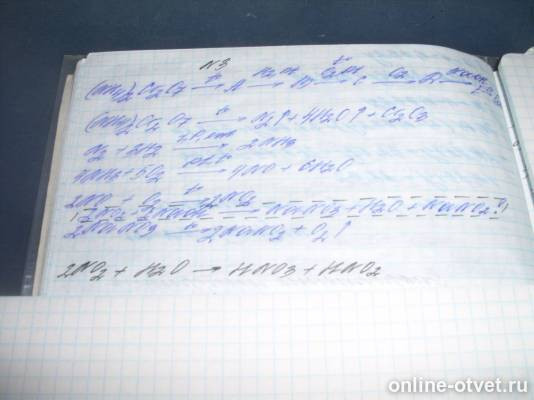 N3
(NH4)2Cr2O7 →
(NH4)2Cr2O7 → N2↑ + 4H2O↑ + Cr2O3
N2 + 3H2 → 2NH3
4NH3 + 5O2 → 4NO + 6H2O
2NO + O2 → 2NO2
2NO2 + 2NaOH → NaNO3 + H2O + NaNO2
2NaNO3 → 2NaNO2 + O2↑
2NO2 + H2O → HNO3 + HNO2
online-otvet.ru